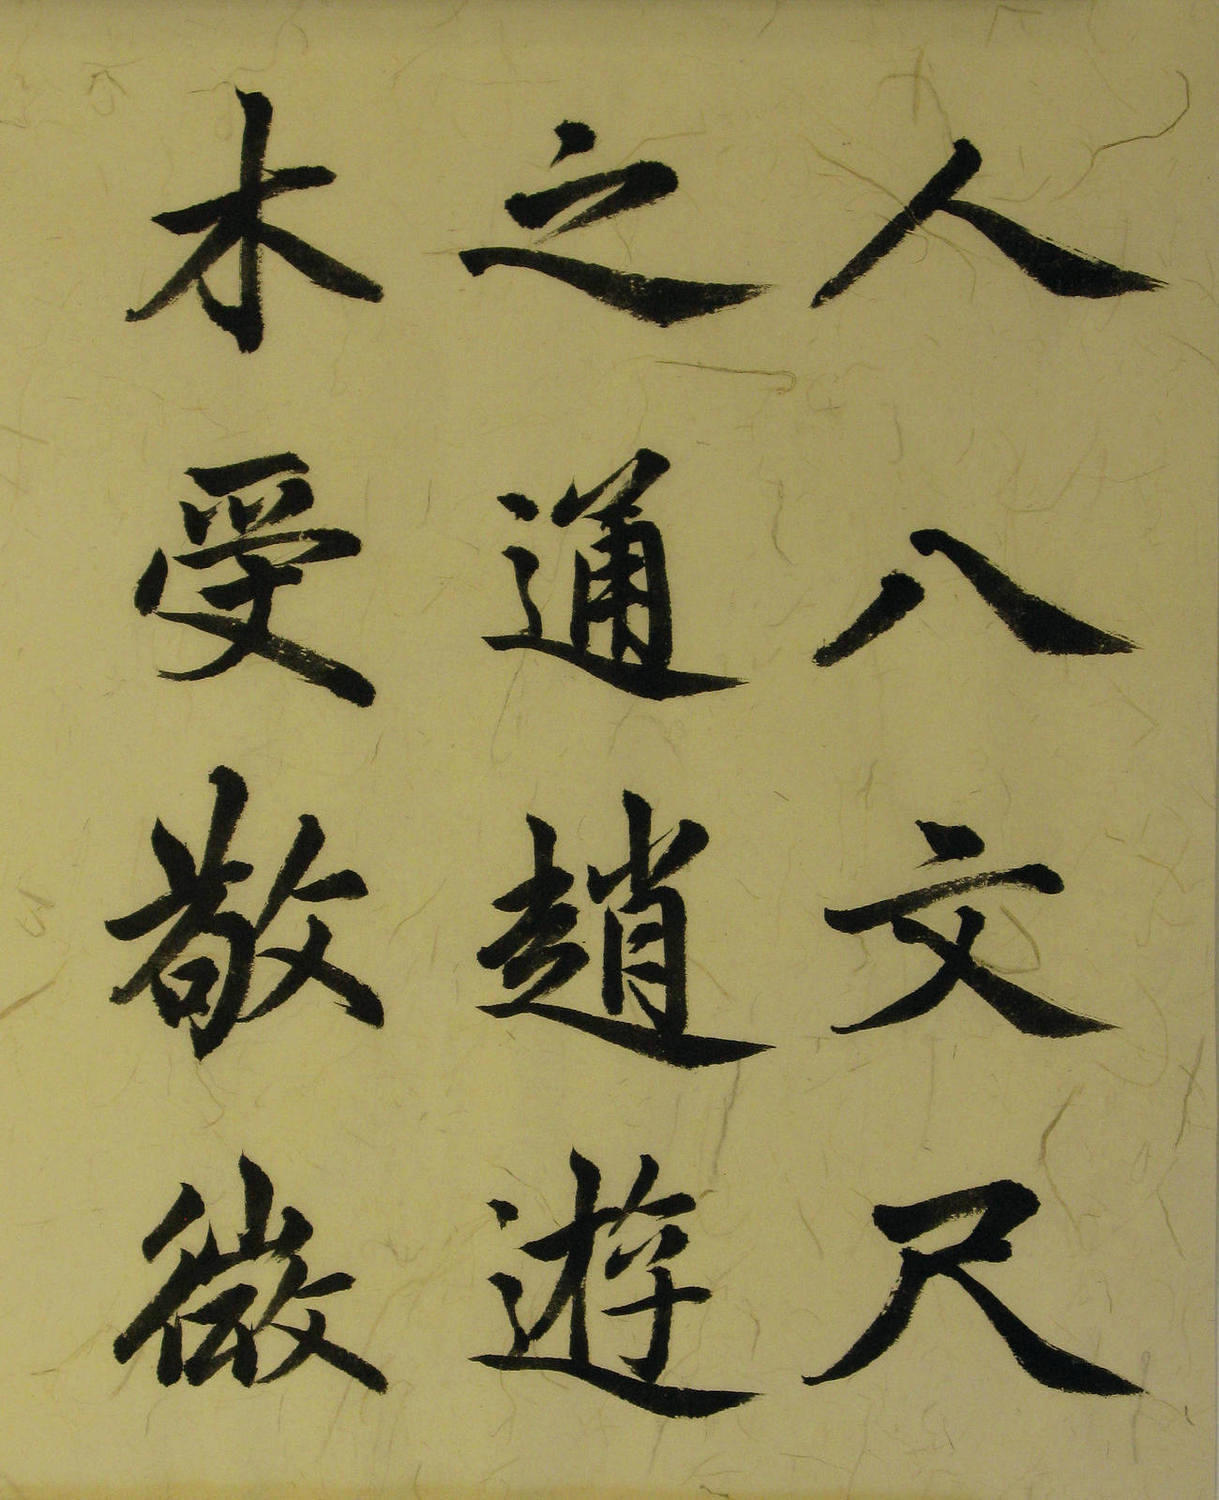 人八文尺
之通趙遊
木受敬微